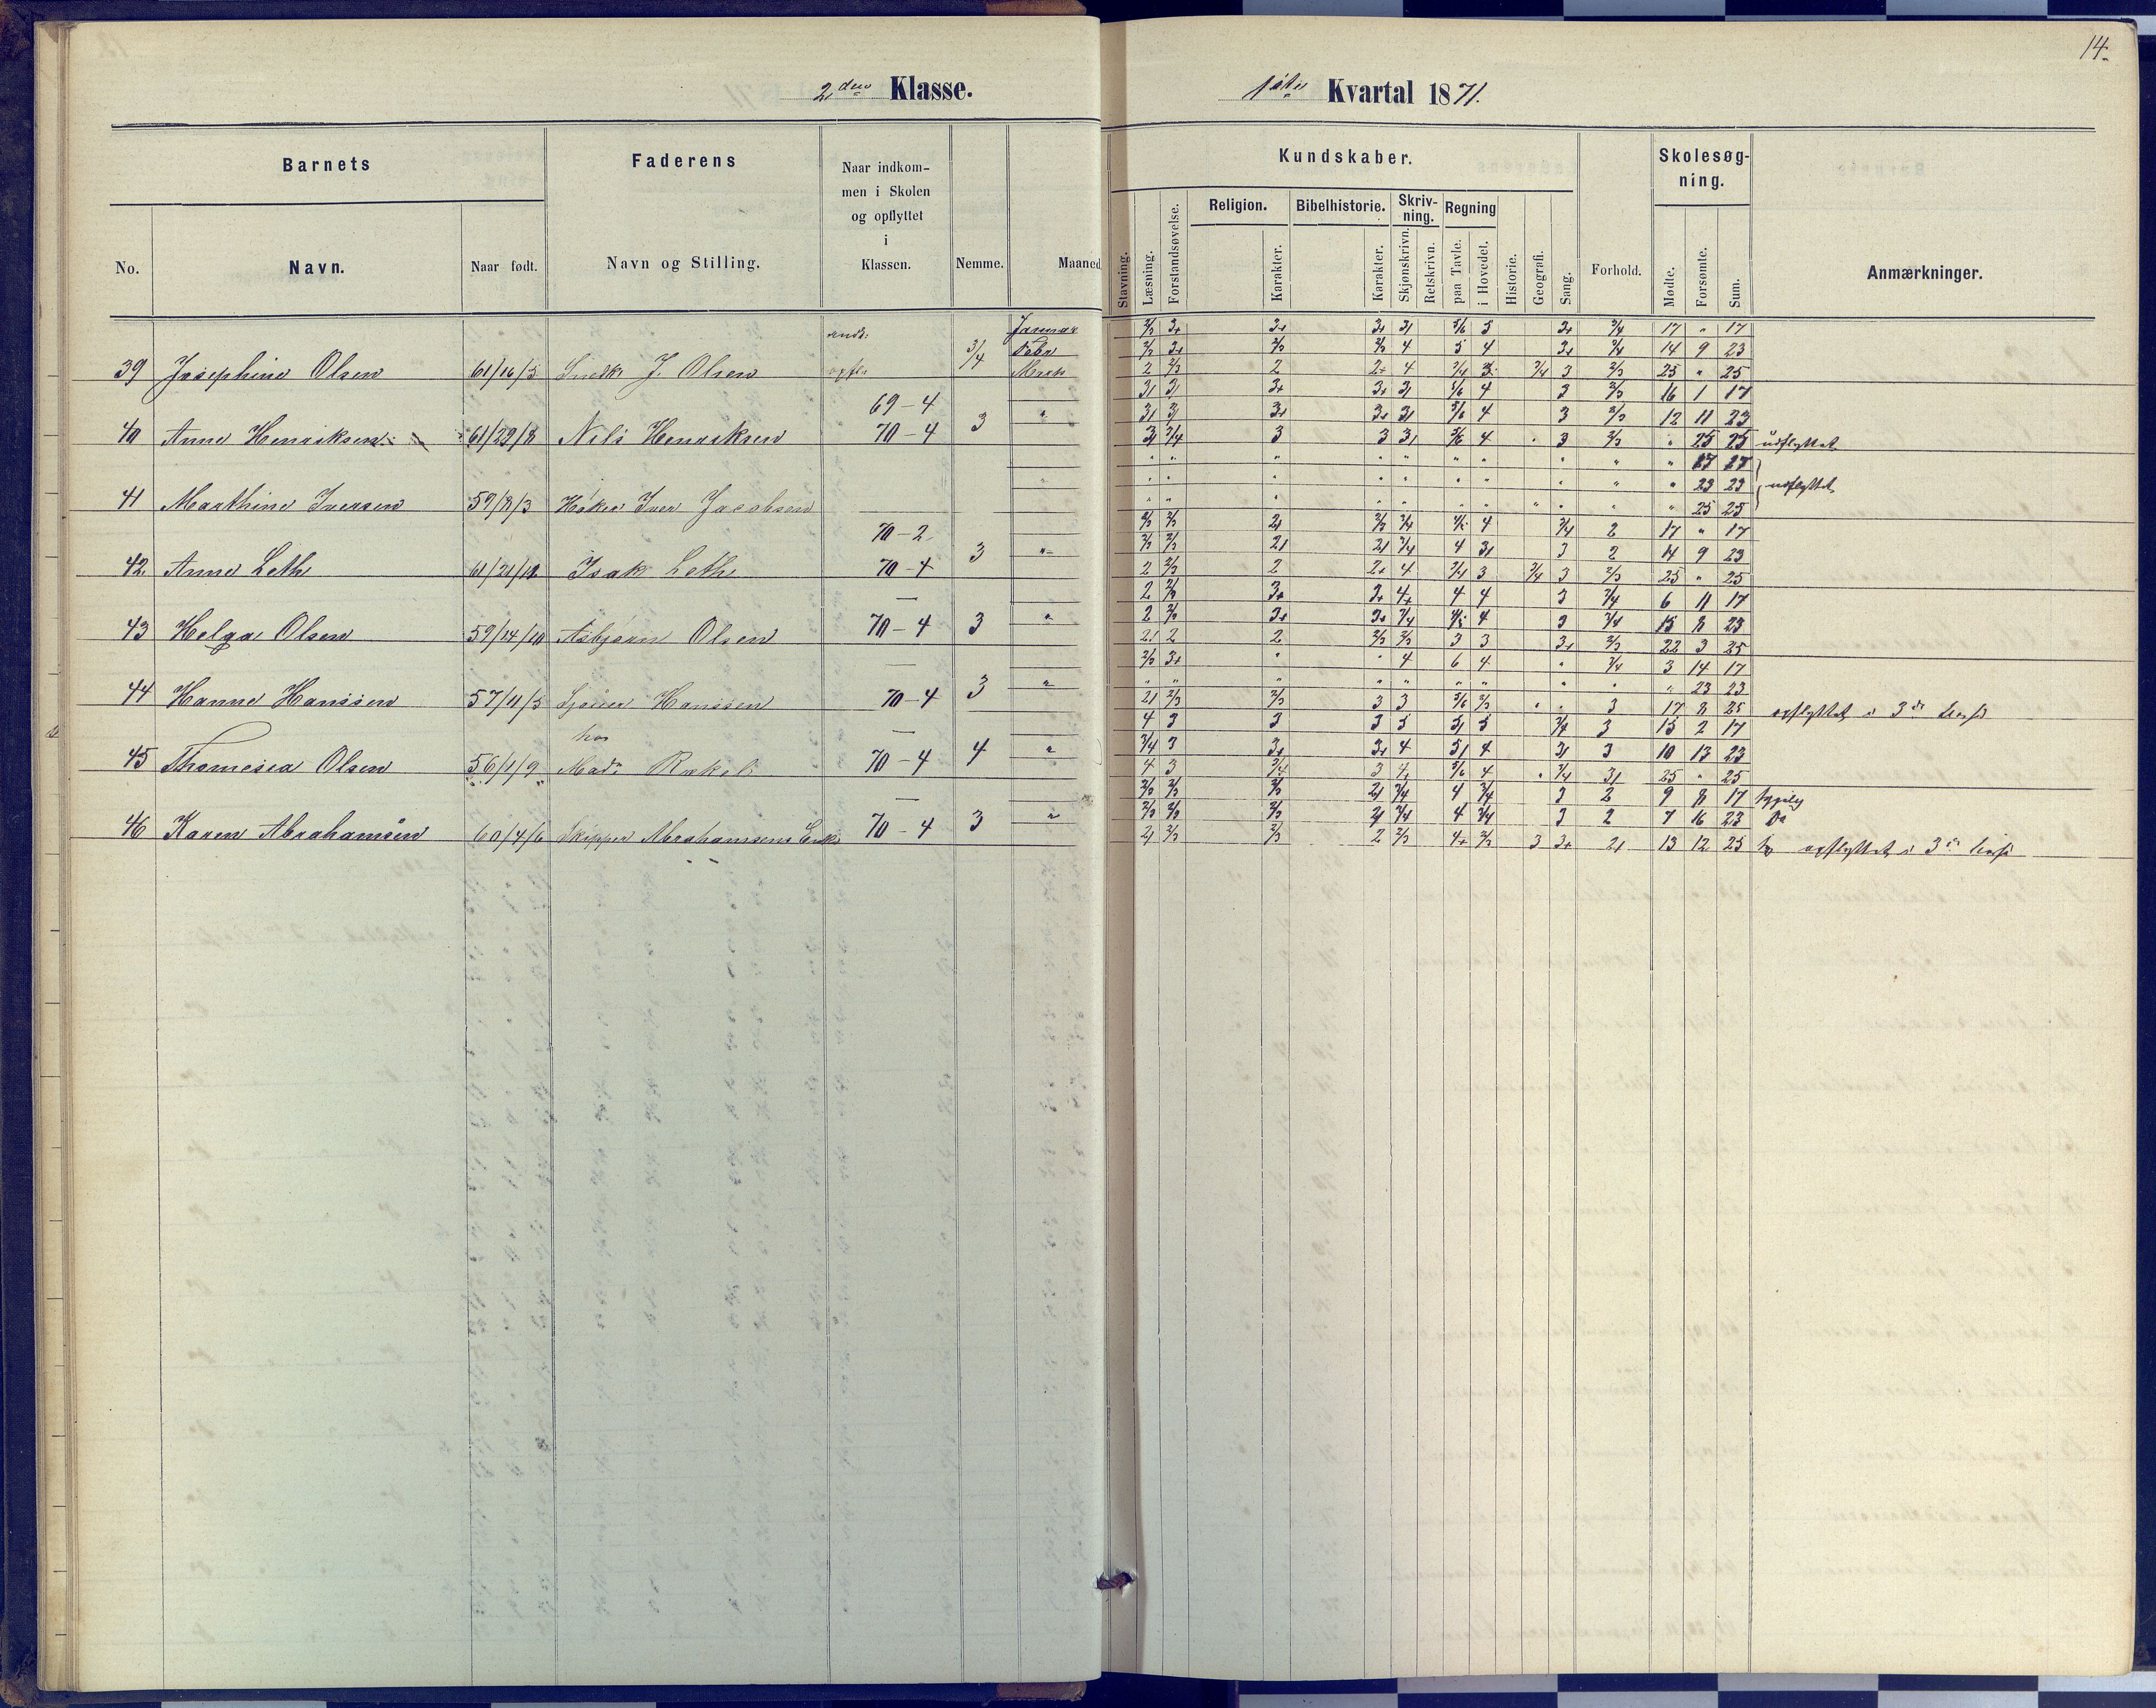 14.
2den Klasse.
1ste Kvartal 1871.
Barnets
Faderens
Naar indkommen i Skolen og opflyttet i Klassen.
Kundskaber.
Skolesøgning.
No.
Navn.
Naar født.
Navn og Stilling.
Nemme.
Maaned
Stavning.
Læsning.
Forstandsøvelse.
Religion.
Karakter.
Bibelhistorie.
Karakter.
Skrivning.
Skjønskrivn.
Retskrivn.
Regning
paa Tavle.
i Hovedet.
Historie.
Geografi.
Sang.
Forhold.
Mødte.
Forsømte.
Sum.
Anmærkninger.
Januar 2/3 3+ 3+ 3+ 31 5/6 5 3+ 3/4 17 " 17
Febr 2/3 3+ 2/3 2/3 4 5 4 3+ 3/4 14 9 23
39 Josephine Olsen 61/16/5 Snedk J. Olsen 3/4 Marts 2 2/3 2 2+ 4 3/4 3 3/4 3 2/3 25 " 25
69-4 31 31 3+ 3+ 31 5/6 4 3 2/3 16 1 17
3 " 31 3+ 3+ 31 5/6 4 3 2/3 12 11 23
40 Anne Henriksen 61/29/8 Nils Henriksen 70-4 31 3/4 3 3 31 5/6 4 " 3 2/3 " 25 25 udflyttet
" 17 17
" 23 23 udflyttet
41 Marthine Iversen 59/8/3 Iver Jacobsen " 25 25
70-2 2/3 2/3 2+ 2/3 3/4 4 3/4 2 17 " 17
3 " 2/3 2/3 21 21 3/4 4 31 3 2 14 9 23
42. Anne Leth 61/21/12 Isak Leth 70-4 2 2/3 2 2+ 4 3/4 3 3/4 3 2/3 25 " 25
2 2/3 3+ 3+ 4+ 4 4 3 3/4 6 11 17
2 2/3 3+ 3+ 3/4 4 3 3/4 15 8 23
43 Helga Olsen 59/14/10 Asbjørn Olsen 70-4 3 " 21 2 2 2/3 2/3 3 3 3+ 2/3 22 3 25
2/3 3+ " " 4 6 4 " 3/4 3 14 17
" 23 23
44 Hanne Hanssen 57/11/5 Hanssen 70-4 3 " 21 2/3 2/3 3 3 5/6 2/3 " " 3 17 8 25 opflyttet i 3de
hos 4 3 3 3 5 51 5 3/4 3 15 2 17
3/4 3 3+ 3+ 4 51 4 31 3 10 13 23
45 Thomesea Olsen 56/1/9 Mad. 70-4 4 " 4 3 3/4 3 5/6 4 " 3/4 31 25 " 25
2/3 2/3 2/3 21 3/4 4 3/4 3 2 9 8 17
2/3 2/3 2/3 21 3/4 4 3/4 3 2 7 16 23
46 Karen Abrahamsen 60/4/6 Skipper Abrahamsens Enke 70-4 3 " 21 2/3 2/3 2 2/3 4+ 2/3 3 3+ 21 13 12 25 opflyttet i 3de